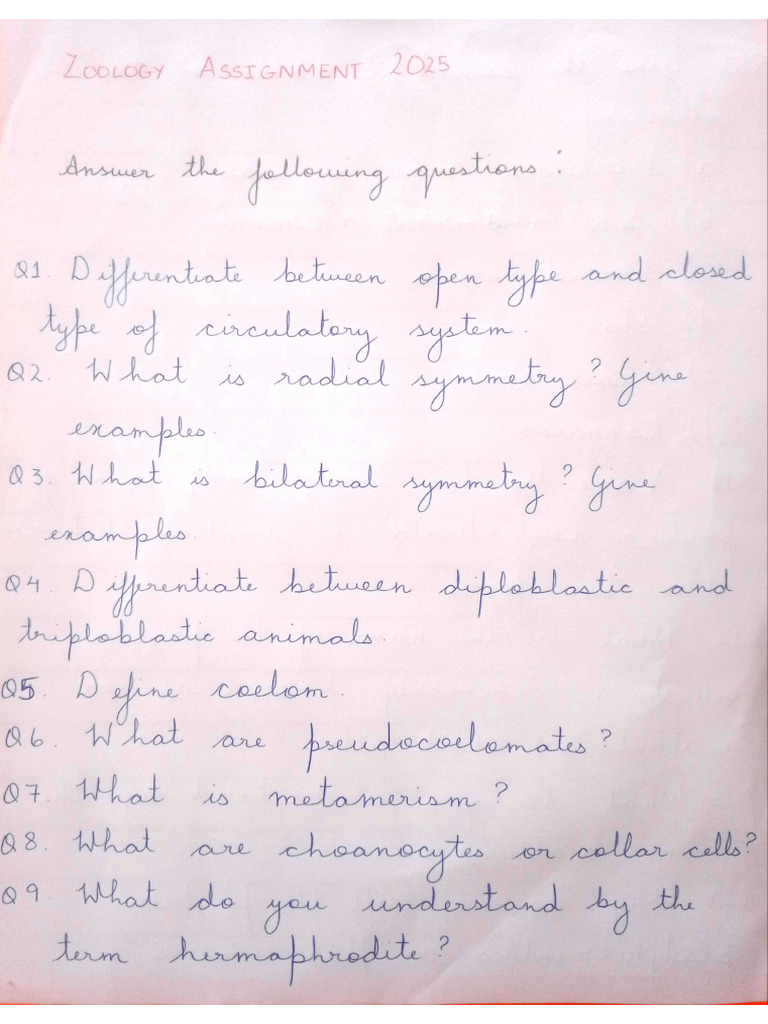 ZOOLOGY ASSIGNMENT 2025
Answer the following questions:
Q1. Differentiate between open type and closed
type of circulatory system.
Q2. What is radial symmetry? Give
examples.
Q3. What is bilateral symmetry? Give
examples.
Q4 Differentiate between diploblastic and
triploblastic animals.
Q5. Define coelom.
Q6. What are pseudocoelomates?
Q7. What is metamerism?
Q8. What are choanocytes or collar cells?
Q9 What do you understand by the
term hermaphrodite?